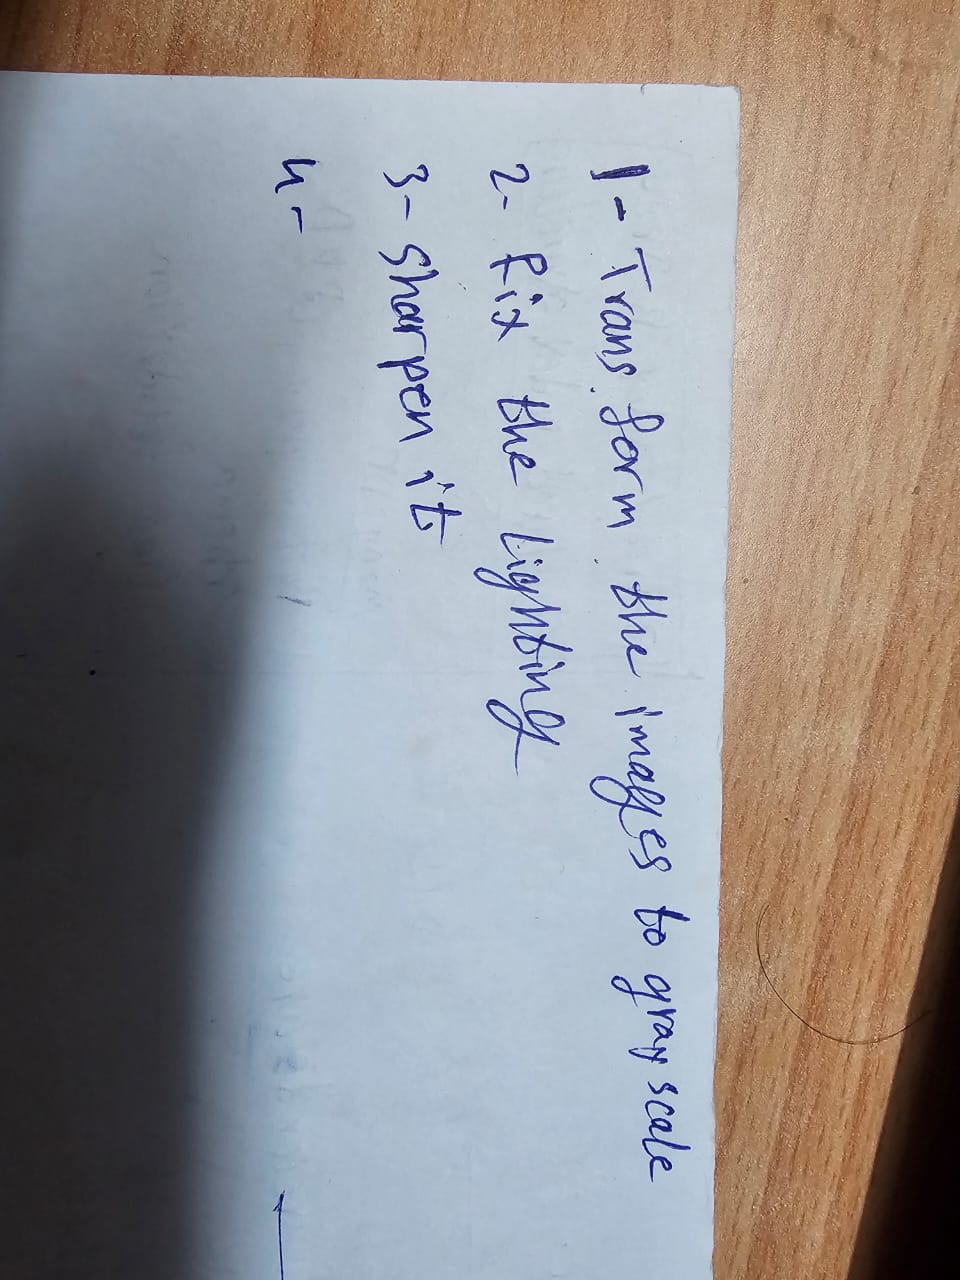 1- Transform the images to grayscale
2- fix the Lighting
3- Sharpen it
4-